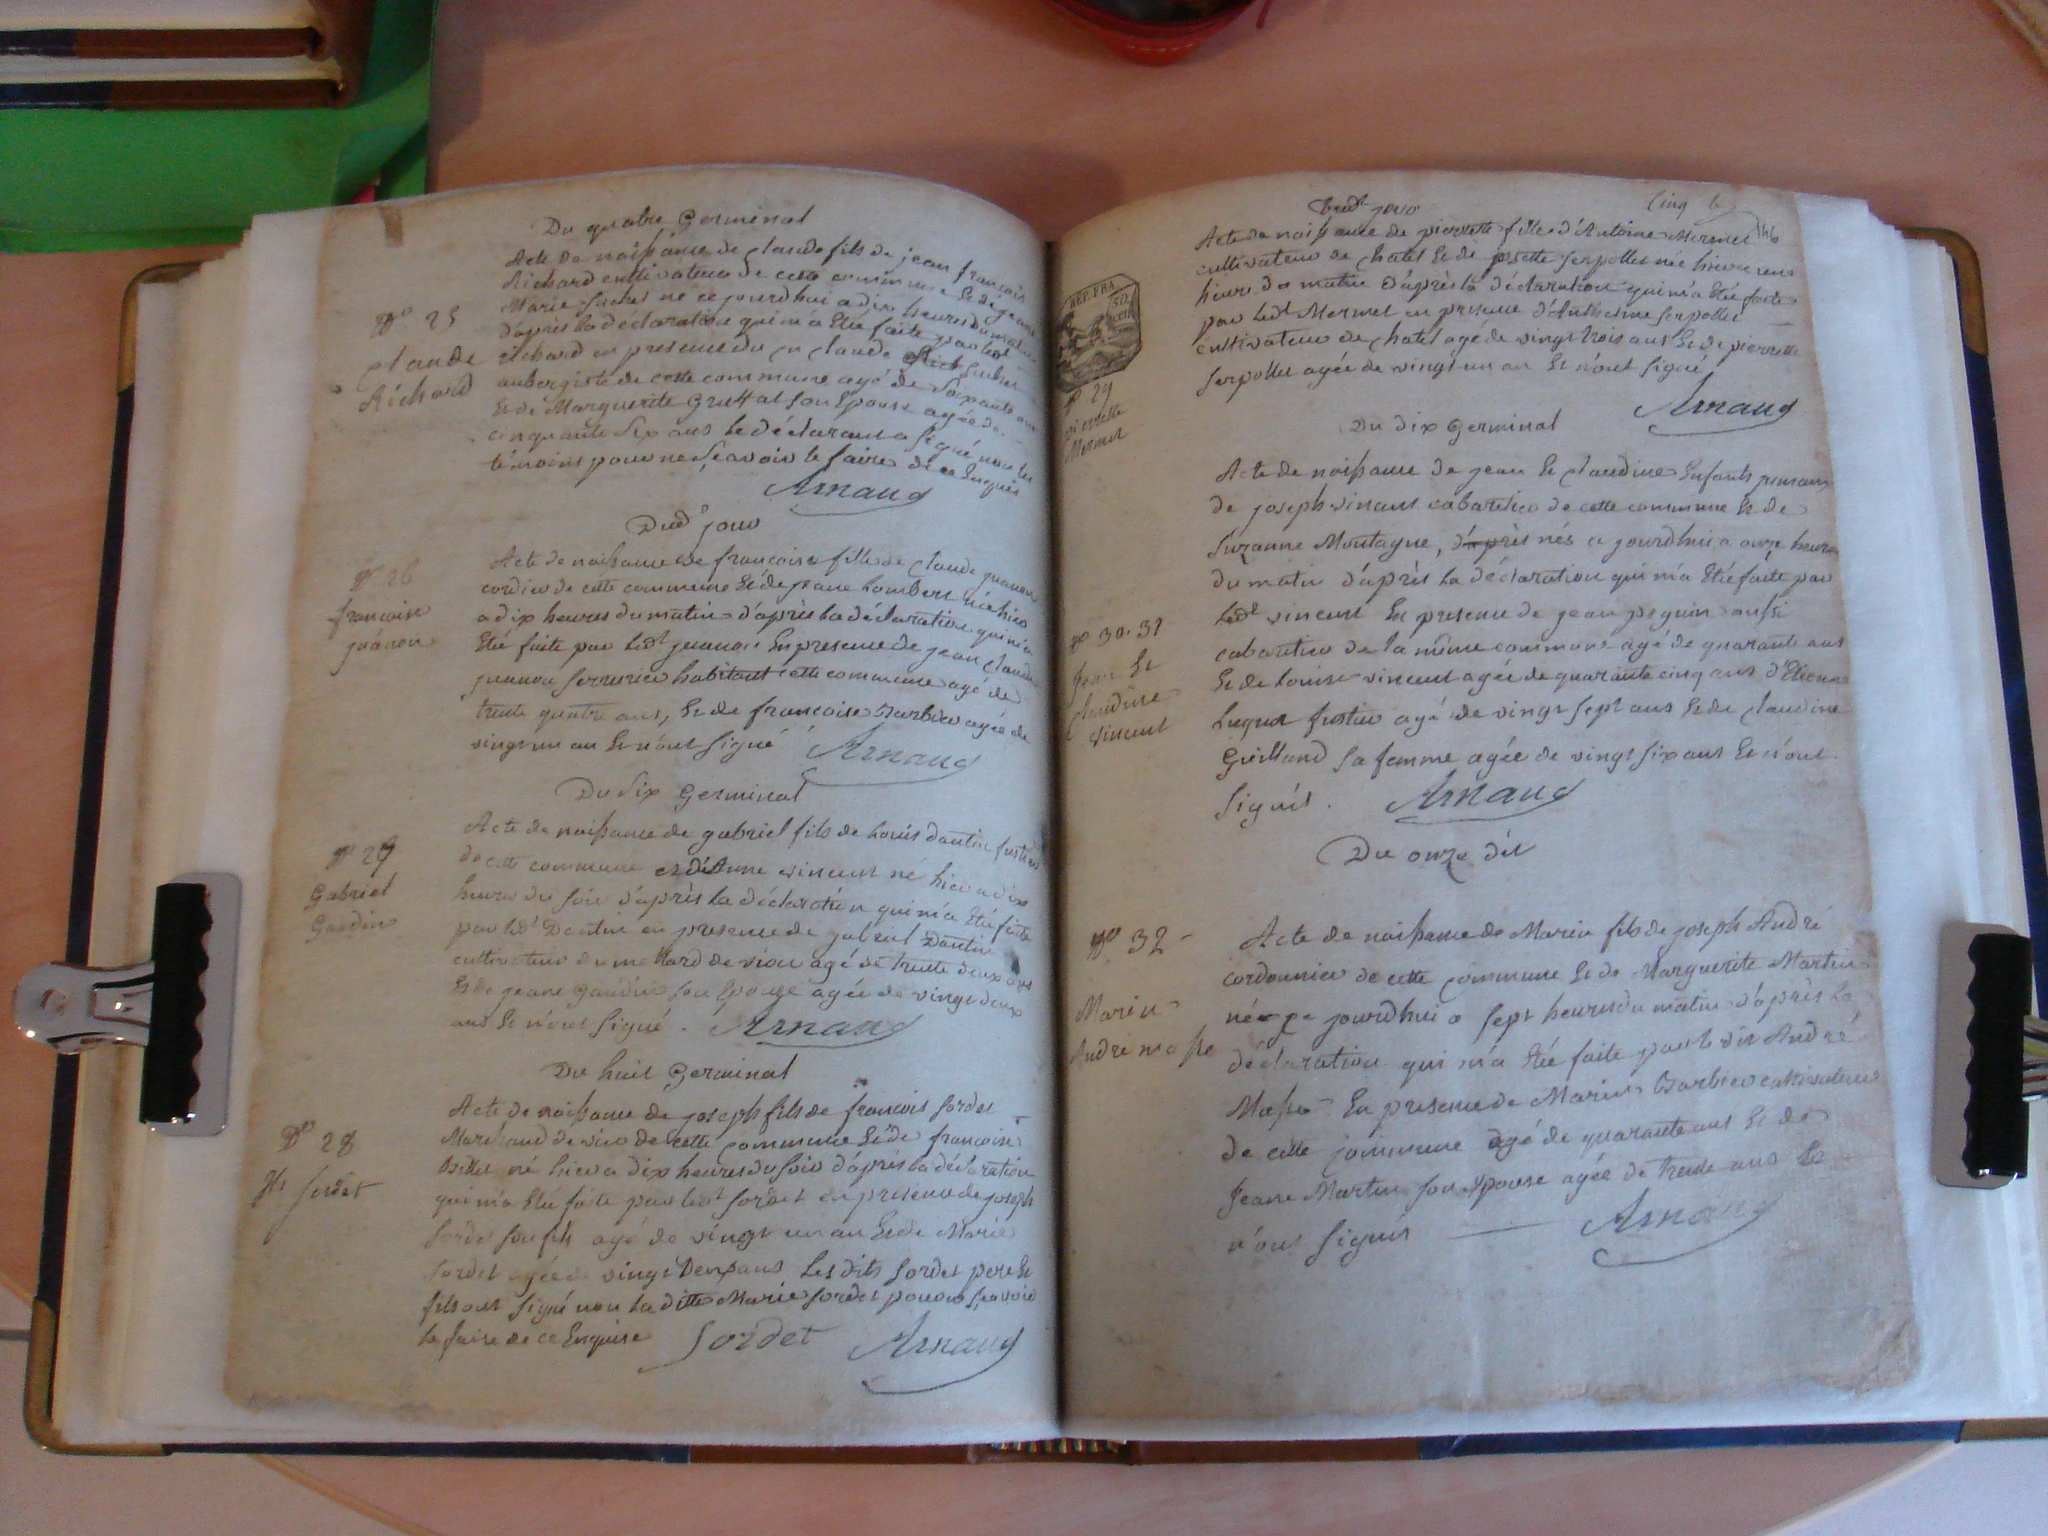 Du quatre Germinal
Acte de naissance de claude fils de jean françois
Richard cultivateur de cette commune Et de jeane
Marie Suchet né ce jourd'hui a dix heures du matin
N° 25
d'après la déclaration qui m'a Eté faite par ledt
claude
Richard
Richard en presence du cn claude Suchet
aubergiste de cette commune agé de Soixante ans
Et de Marguerite Gruffat son Epouse agée de
cinquante Six ans le déclarant a signé non les
témoins pour ne Sçavoir le faire de ce Enquis
Arnaud
Dud jour
N° 26
françoise
juanon
Acte de naissance de françoise fille de claude juanon
cordier de cette commune Et de jeane Lombert née hier
a dix heures du matin d'après la déclaration qui m'a
Eté faite par ledt juanon En presence de jean claude
juanon serrurier habitant cette commune agé de
trente quatre ans, Et de françoise Barbier agée de
vingt un an Et n'ont signé
Arnaud
Du six Germinal
N° 27
Gabriel
Acte de naissance de gabriel fils de Louis Dantin fustier
de cette commune et d'Anne vincent né hier a dix
heures du soir d'après la déclaration qui m'a Eté faite
par ledt Dantin en presence de gabriel Dantin
cultivateur de mollard de vion agé de trente deux ans
Et de jeane gaudin son Epouse agée de vingt deux
ans Et n'ont signé. Arnaud
Du huit Germinal
N° 28
Jh Sordet
Acte de naissance de joseph fils de françois Sordet
Marchand de cette commune Et de françoise
Billet né hier a dix heures du soir d'après la déclaration
qui m'a Eté faite par ledt Sordet en presence de joseph
Sordet son fils agé de vingt un an Et de Marie
Sordet agée de vingt Deux ans Les dits Sordet pere Et
fils ont signé non La ditte Marie Sordet pour ne Sçavoir
le faire de ce Enquise Sordet Arnaud
Dudt jour
Cinq
146
REP. FRA
Acte de naissance de pierrette fille d'Antoine Mermet
cultivateur de chatel Et de josette Serpollet née hier a une
heure du matin d'après la déclaration qui m'a Eté faite
par ledt Mermet en presence d'Anthelme Serpollet
cultivateur de chatel agé de vingt trois ans Et de pierrette
Serpollet agée de vingt un an Et n'ont signé
Arnaud
N° 29
pierrette
Mermet
Du dix Germinal
Acte de naissance de jean Et claudine Enfants jumeaux
de joseph vincent cabaretier de cette commune Et de
Suzanne Montagne, d'après nés a jourdhui a onze heures
du matin d'après la déclaration qui m'a Eté faite par
ledt vincent En presence de jean peguin aussi
cabaretier de la même commune agé de quarante ans
Et de Louise vincent agée de quarante cinq ans d'Etienne
N° 30. 31
Jean Et
claudine
vincent
Luquet fustier agé de vingt sept ans Et de claudine
Guilland sa femme agée de vingt six ans Et n'ont
signés. Arnaud
Du onze dit
N° 32
Marin
André masse
Acte de naissance de Marin fils de joseph André
cordonnier de cette commune Et de Marguerite Martin
né ce jourdhui a sept heures du matin d'après la
déclaration qui m'a Eté faite par le dit André
Masse En presence de Marin Barbier cultivateur
de cette commune agé de quarante ans Et de
Jeane Martin son Epouse agée de trente ans Et
n'ont signés Arnaud